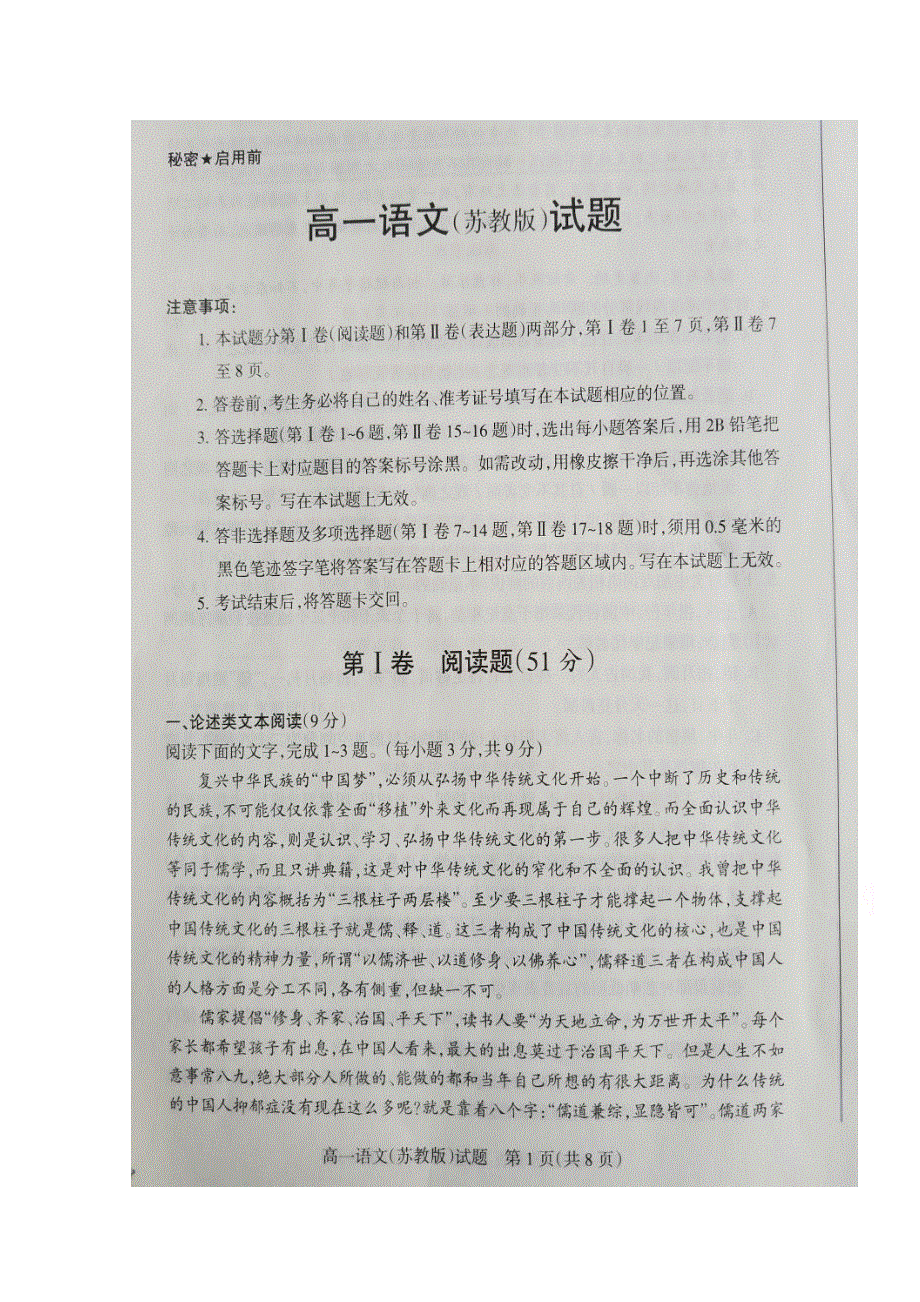 秘密★启用前
高一语文(苏教版)试题
注意事项:
1. 本试题分第Ⅰ卷(阅读题)和第Ⅱ卷(表达题)两部分,第Ⅰ卷1至7页,第Ⅱ卷7
至8页。
2. 答卷前,考生务必将自己的姓名、准考证号填写在本试题相应的位置。
3. 答选择题(第Ⅰ卷1~6题,第Ⅱ卷15~16题)时,选出每小题答案后,用2B铅笔把
答题卡上对应题目的答案标号涂黑。如需改动,用橡皮擦干净后,再选涂其他答
案标号。写在本试题上无效。
4. 答非选择题及多项选择题(第Ⅰ卷7~14题,第Ⅱ卷17~18题)时,须用0.5毫米的
黑色笔迹签字笔将答案写在答题卡上相对应的答题区域内。写在本试题上无效。
5. 考试结束后,将答题卡交回。
第Ⅰ卷 阅读题(51分)
一、论述类文本阅读(9分)
阅读下面的文字,完成1~3题。(每小题3分,共9分)
复兴中华民族的“中国梦”,必须从弘扬中华传统文化开始。一个中断了历史和传统
的民族,不可能仅仅依靠全面“移植”外来文化而再现属于自己的辉煌。而全面认识中华
传统文化的内容,则是认识、学习、弘扬中华传统文化的第一步。很多人把中华传统文化
等同于儒学,而且只讲典籍,这是对中华传统文化的窄化和不全面的认识。我曾把中华
传统文化的内容概括为“三根柱子两层楼”。至少要三根柱子才能撑起一个物体,支撑起
中国传统文化的三根柱子就是儒、释、道。这三者构成了中国传统文化的核心,也是中国
传统文化的精神力量,所谓“以儒济世、以道修身、以佛养心”,儒释道三者在构成中国人
的人格方面是分工不同,各有侧重,但缺一不可。
儒家提倡“修身、齐家、治国、平天下”,读书人要“为天地立命,为万世开太平”。每个
家长都希望孩子有出息,在中国人看来,最大的出息莫过于治国平天下。但是人生不如
意事常八九,绝大部分人所做的、能做的都和当年自己所想的有很大距离。为什么传统
的中国人抑郁症没有现在这么多呢?就是靠着八个字:“儒道兼综,显隐皆可”。儒道两家
高一语文(苏教版)试题 第1页(共8页)